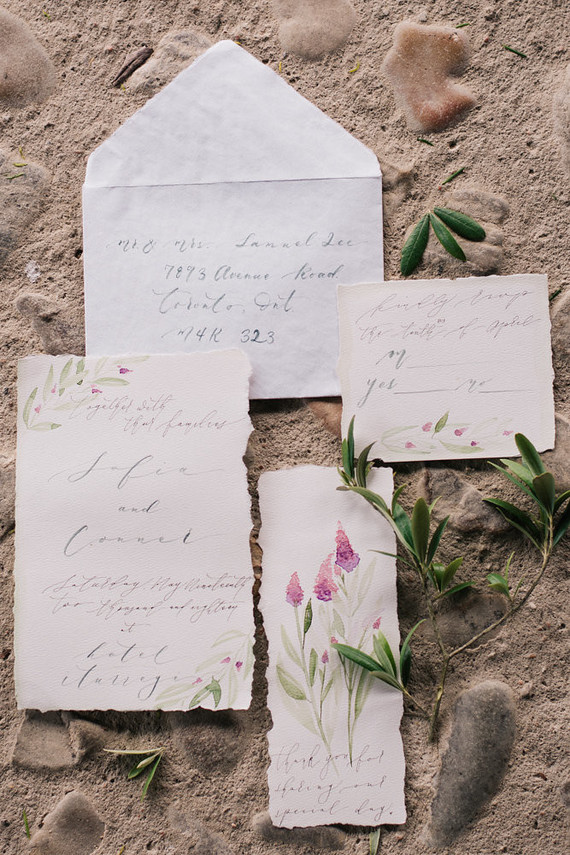 Mr. & Mrs. Samuel Lee
7893 Avenue Road
Toronto, Ont
M4K 323
kindly rsvp
the tenth of April
M
yes no
Together with
their families
Sofia
and
Conner
Saturday May Nineteenth
two thousand and eighteen
at
hotel
thank you for
sharing our
special day.